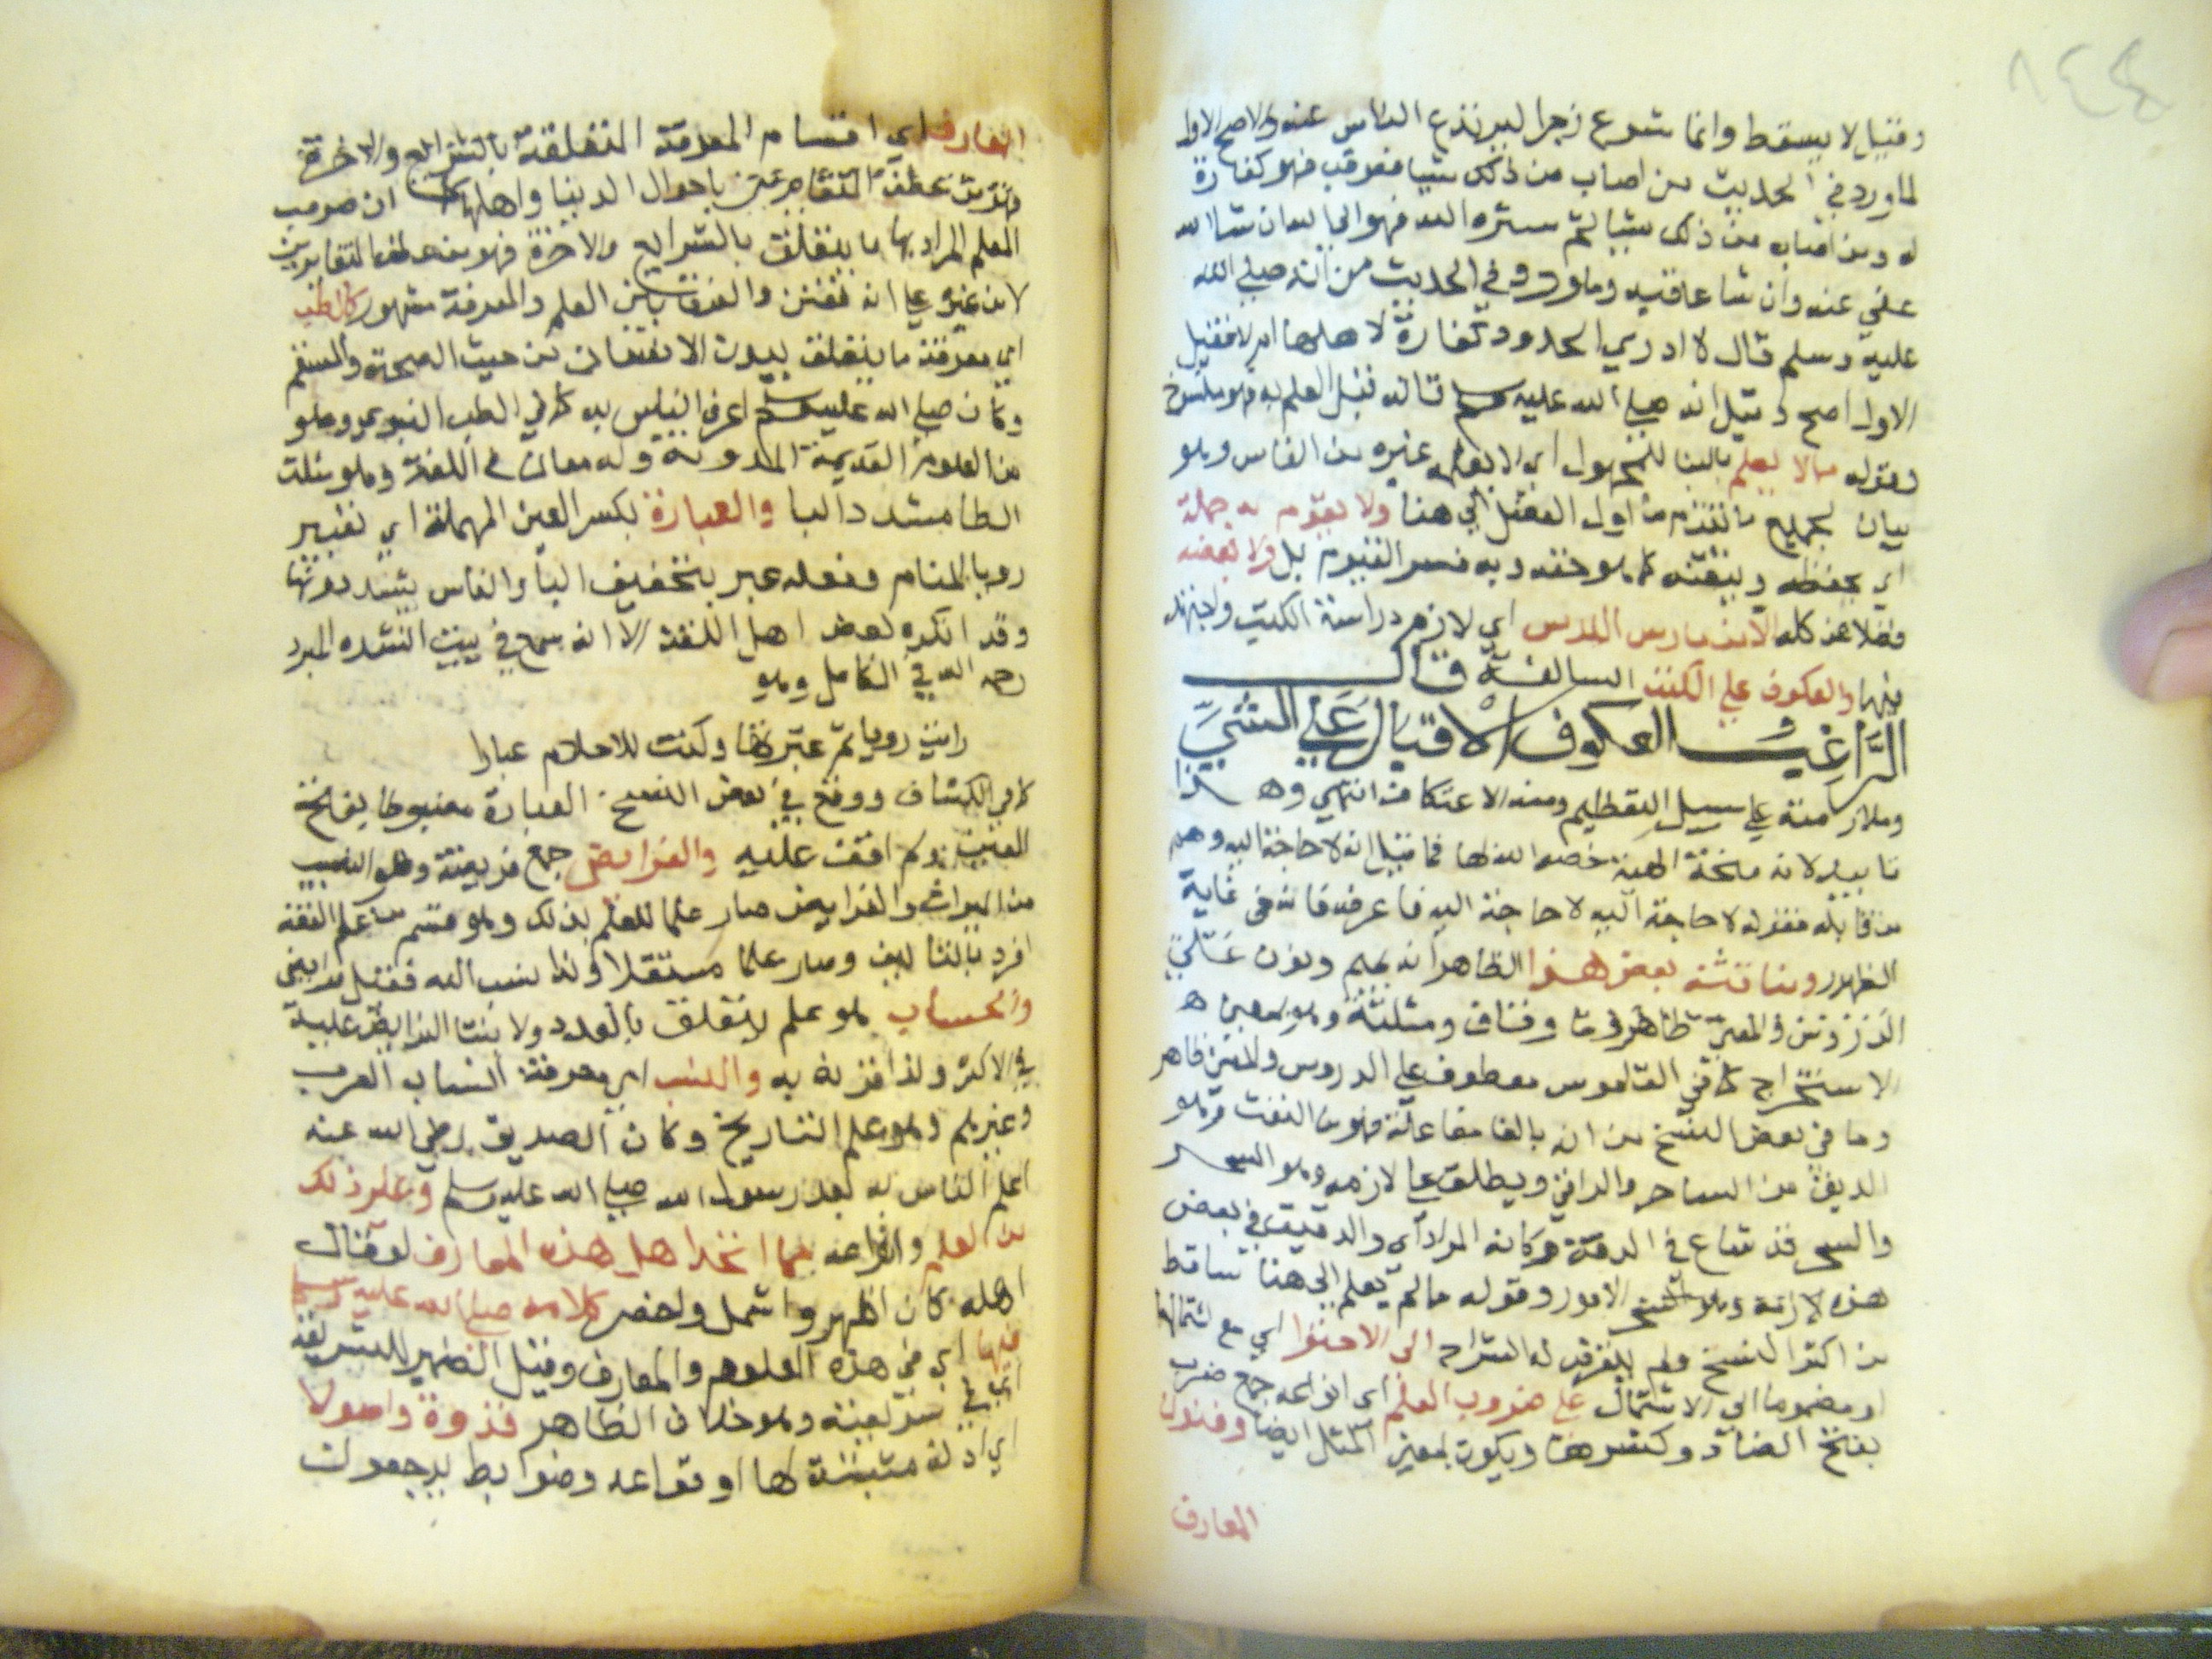 وقيل لا يسقط وانما شرع زجرا ليرتدع الناس عنه والاصح الاول
لما ورد في الحديث من اصاب من ذلك شيا فعوقب فهو كفارة
له ومن اصاب من ذلك شيا ثم ستره الله فهو الى الله ان شا الله
عفي عنه وان شا عاقبه وما ورد في الحديث من انه صلى الله
عليه وسلم قال لا ادري الحدود كفارة لاهلها ام لا فقيل
الاول اصح وقيل انه صلى الله عليه وسلم قاله قبل العلم به فهو منسوخ
وقوله مالا يعلم بالبنا للمجهول اي لا يعلمه غيره من الناس وهو
بيان لجميع ما تقدم من اول الفصل الى هنا ولا يقوم به جملة
اي بحفظه ويتقنه كما هو حقه وبه فسر القيوم بل ولا بعضه
فضلا عن كله الا من مارس الدرس اي لازم دراسة الكتب واجتهد
فيها والعكوف على الكتب السالفة قال
الراغب العكوف الاقبال على الشي
وملازمته على سبيل التعظيم ومنه الاعتكاف انتهى وهذا
تاييد لانه منحة الهية خصه الله بها فما قيل انه لا حاجة اليه وهم
من قايله فقوله لا حاجة اليه لا حاجة اليه فاعرفه فانه في غاية
الظهور ومناقشة بعض هذا الظاهر انه بميم
الاستخراج كما في القاموس معطوف على الدروس
وما في بعض النسخ من انه بالفا مفاعلة فهو من النفث وهو
الريق من الساحر والراقي ويطلق على لازمه وهو السحر
والسحر قد شاع في الدقة فكانه المراد اي والدقيق في بعض
هذه لازمة الامور وقوله مالم يعلم الى هنا ساقط
من اكثر النسخ ولم يتعرض له الشراح الى الاحتوا اي مع اشتمالها
او مضموما الى الاشتمال على ضروب العلم اي انواعه جمع ضرب
بفتح الضاد وكسرها ويكون بمعنى المثل ايضا وفنون
المعارف
المعارف اي اقسام المعرفة المتعلقة بالشرايع والاخرة
فهو من عطف المتغايرين باحوال الدنيا واهلها كما ان ضروب
العلم المراد بها ما يتعلق بالشرايع والاخرة فهو من عطف المتغايرين
لا من غيره على انه تفنن والفرق بين العلم والمعرفة مشهور كالطب
اي معرفة ما يتعلق ببدن الانسان من حيث الصحة والسقم
وكان صلى الله عليه وسلم اعرف الناس به كما في الطب النبوي وهو
من العلوم القديمة المدونة وله معان في اللغة وهو مثلث
الطا مشدد البا والعبارة بكسر العين المهملة اي تعبير
رويا المنام وفعله عبر بتخفيف البا والناس يشددونها
وقد انكره بعض اهل اللغة الا انه سمع في بيت انشده المبرد
رحمه الله في الكامل وهو
رايت رويا ثم عبرتها وكنت للاحلام عبارا
كما في الكشاف ووقع في بعض النسخ العبارة مضبوطا بفتح
العين ولم اقف عليه والفرايض جمع فريضة وهو النصيب
من الميراث والفرايض صار علما للعلم بذلك وهو قسم من علم الفقه
افرد بالتاليف وصار علما مستقلا ولذا نسب اليه فقيل فرايضي
والحساب هو علم يتعلق بالعدد ولابتنا الفرايض عليه
في الاكثر ولذا قرنه به والنسب اي معرفة انساب العرب
وغيرهم وهو علم التاريخ وكان الصديق رضي الله عنه
اعلم الناس به بعد رسول الله صلى الله عليه وسلم وغير ذلك
من العلم وانواعه مما اتخذ اهل هذه المعارف
اهله كان اظهر واشمل واخصر كلامه صلى الله عليه وسلم
فيها اي في هذه العلوم والمعارف وقيل الضمير للشريعة
اي في شريعته وهو خلاف الظاهر قدوة واصولا
اي ادلة مثبتة لها او قواعد وضوابط يرجعون